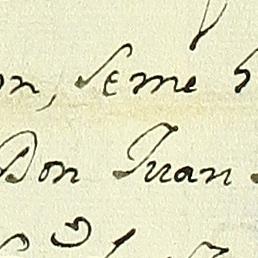 on, seme h
Don Juan